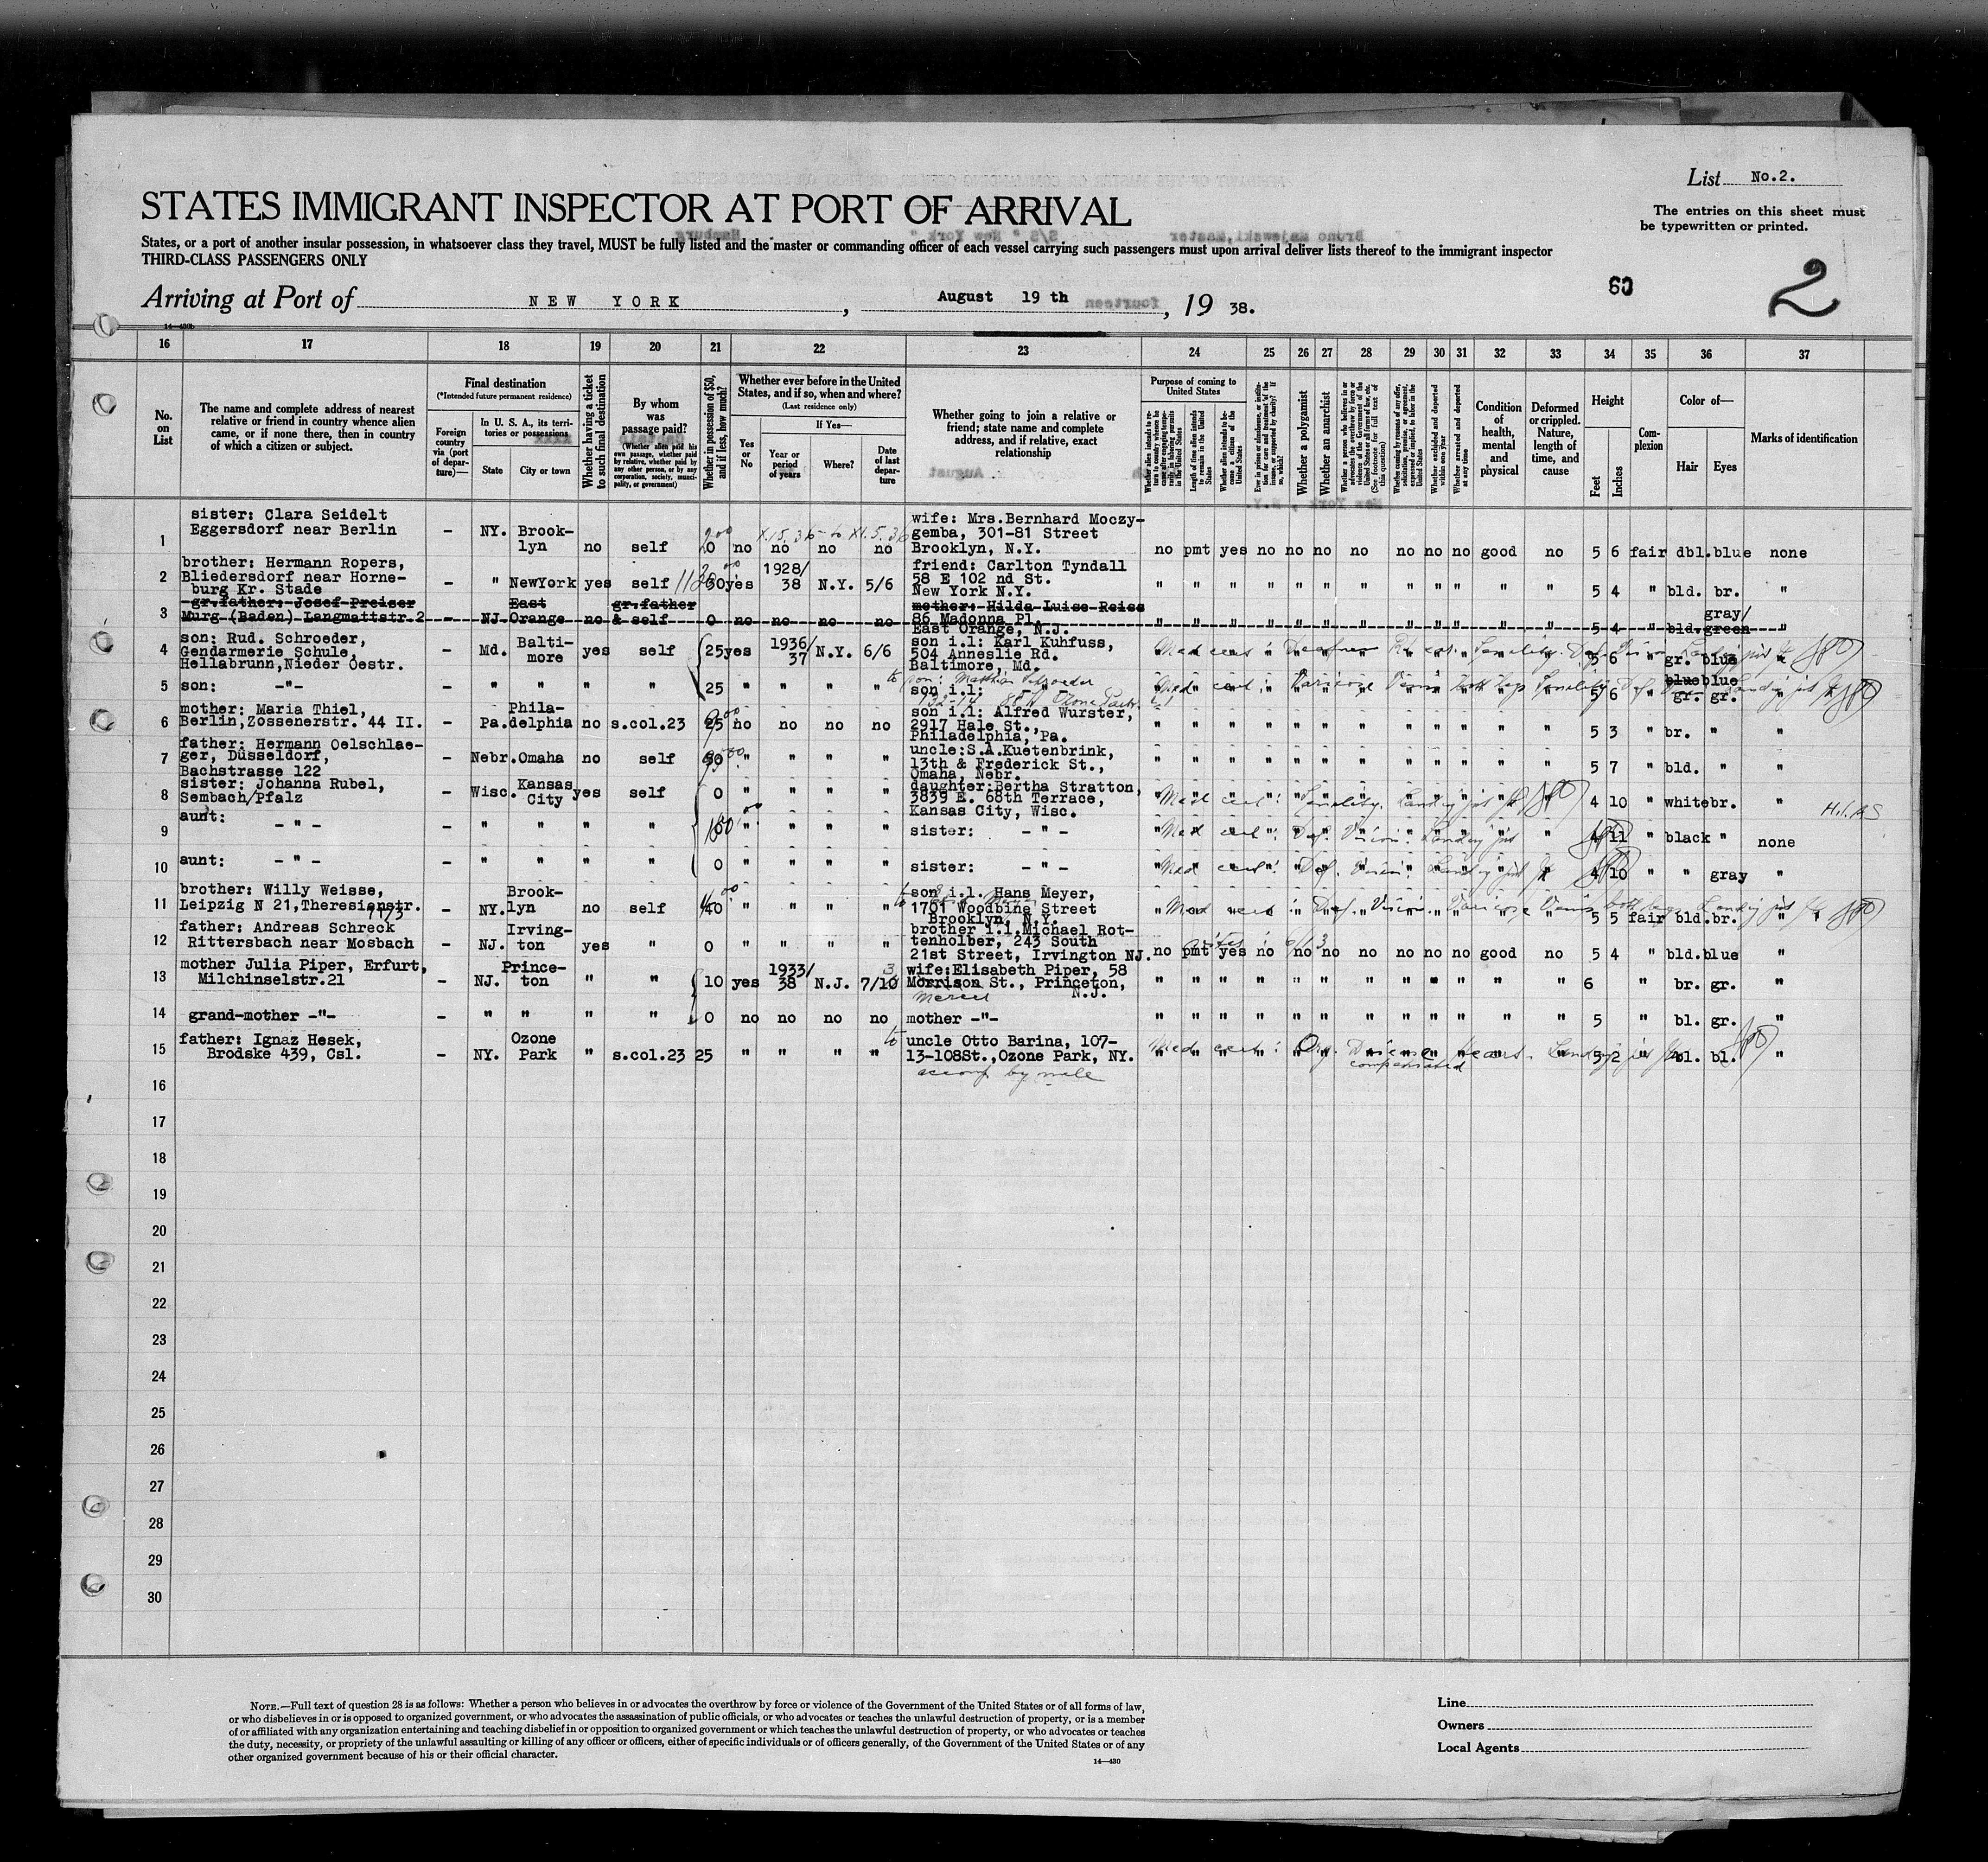 List No.2.
STATES IMMIGRANT INSPECTOR AT PORT OF ARRIVAL
The entries on this sheet must
be typewritten or printed.
States, or a port of another insular possession, in whatsoever class they travel, MUST be fully listed and the master or commanding officer of each vessel carrying such passengers must upon arrival deliver lists thereof to the immigrant inspector
THIRD-CLASS PASSENGERS ONLY
60 2
Arriving at Port of NEW YORK, August 19 th, 19 38.
16 17 18 19 20 21 22 23 24 25 26 27 28 29 30 31 32 33 34 35 36 37
No. on List
The name and complete address of nearest relative or friend in country whence alien came, or if none there, then in country of which a citizen or subject.
Final destination
(*Intended future permanent residence)
Foreign country via (port of departure)—
In U. S. A., its territories or possessions
State City or town
Whether having a ticket to such final destination
By whom was passage paid?
(Whether alien paid his own passage, whether paid by relative, whether paid by any other person, or by any corporation, society, municipality, or government)
Whether in possession of $50, and if less, how much?
Whether ever before in the United States, and if so, when and where?
(Last residence only)
Yes or No
If Yes—
Year or period of years
Where?
Date of last departure
Whether going to join a relative or friend; state name and complete address, and if relative, exact relationship
Purpose of coming to United States
Length of time alien intends to remain in the United States
Whether alien intends to become a citizen of the United States
Whether a polygamist
Whether an anarchist
Whether excluded and deported within one year
Whether arrested and deported at any time
Condition of health, mental and physical
Deformed or crippled. Nature, length of time, and cause
Height
Feet Inches
Complexion
Color of—
Hair Eyes
Marks of identification
1 sister: Clara Seidelt Eggersdorf near Berlin - NY. Brooklyn no self no no no no wife: Mrs.Bernhard Moczygemba, 301-81 Street Brooklyn, N.Y. no pmt yes no no no no no no no good no 5 6 fair dbl.blue none
2 brother: Hermann Ropers, Bliedersdorf near Horneburg Kr. Stade - " NewYork yes self yes 1928/38 N.Y. 5/6 friend: Carlton Tyndall 58 E 102 nd St. New York N.Y. " " " " " " " " " " " " 5 4 " bld. br. "
3 gr.father: Josef Preiser Murg (Baden) Langmattstr.2 - NJ. East Orange no gr.father & self 0 no no no no mother: Hilda Luise Reiss 86 Madonna Pl. East Orange, N.J. " " " " " " " " " " " " 5 4 " bld. gray/green "
4 son: Rud. Schroeder, Gendarmerie Schule, Hellabrunn,Nieder Oestr. - Md. Baltimore yes self 25 yes 1936/37 N.Y. 6/6 son i.l: Karl Kuhfuss, 504 Anneslie Rd. Baltimore, Md. 5 6 " gr. blue "
5 son: -"- - " " " " 25 " " " " son i.l: 5 6 gr. gr.
to son: Matthias Schroeder
6 mother: Maria Thiel, Berlin,Zossenerstr. 44 II. - Pa. Philadelphia no s.col.23 25 no no no no son i.l: Alfred Wurster, 2917 Hale St., Philadelphia, Pa. " " " " " " " " " " " " 5 3 " br. " "
7 father: Hermann Oelschlaeger, Düsseldorf, Bachstrasse 122 - Nebr. Omaha no self " " " " uncle:S.A.Kuetenbrink, 13th & Frederick St., Omaha, Nebr. " " " " " " " " " " " " 5 7 " bld. " "
8 sister: Johanna Rubel, Sembach/Pfalz - Wisc. Kansas City yes self 0 " " " " daughter:Bertha Stratton, 3839 E. 68th Terrace, Kansas City, Wisc. Med cert: Senility. 4 10 " white br. "
9 aunt: - " - - " " " " " " " " sister: - " - Med cert: Def. Vision. 4 11 " black " none
10 aunt: - " - - " " " " 0 " " " " sister: - " - Med cert: Def. Vision. 4 10 " " gray "
11 brother: Willy Weisse, Leipzig N 21,Theresienstr. - NY. Brooklyn no self 40 " " " " son i.l. Hans Meyer, 1701 Woodbine Street Brooklyn, N.Y. Med cert: Def. Vision. Varicose Veins both legs 5 5 fair bld.br. "
12 father: Andreas Schreck Rittersbach near Mosbach - NJ. Irvington yes " 0 " " " " brother i.l.Michael Rottenholber, 243 South 21st Street, Irvington NJ. no pmt yes no no no no no no no good no 5 4 " bld.blue "
13 mother Julia Piper, Erfurt, Milchinselstr.21 - NJ. Princeton " " 10 yes 1933/38 N.J. 7/10 wife:Elisabeth Piper, 58 Morrison St., Princeton, N.J. " " " " " " " " " " " " 6 " br. gr. "
Mercer
14 grand-mother -"- - " " " " 0 no no no no mother -"- " " " " " " " " " " " " 5 " bl. gr. "
15 father: Ignaz Hesek, Brodske 439, Csl. - NY. Ozone Park " s.col.23 25 " " " " to uncle Otto Barina, 107-13-108St.,Ozone Park, NY. Med cert: Org. Disease Heart. compensated 5 2 " bl. bl. "
accomp by male
16
17
18
19
20
21
22
23
24
25
26
27
28
29
30
NOTE.—Full text of question 28 is as follows: Whether a person who believes in or advocates the overthrow by force or violence of the Government of the United States or of all forms of law,
or who disbelieves in or is opposed to organized government, or who advocates the assassination of public officials, or who advocates or teaches the unlawful destruction of property, or is a member
of or affiliated with any organization entertaining and teaching disbelief in or opposition to organized government or which teaches the unlawful destruction of property, or who advocates or teaches
the duty, necessity, or propriety of the unlawful assaulting or killing of any officer or officers, either of specific individuals or of officers generally, of the Government of the United States or of any
other organized government because of his or their official character.
14—430
Line
Owners
Local Agents